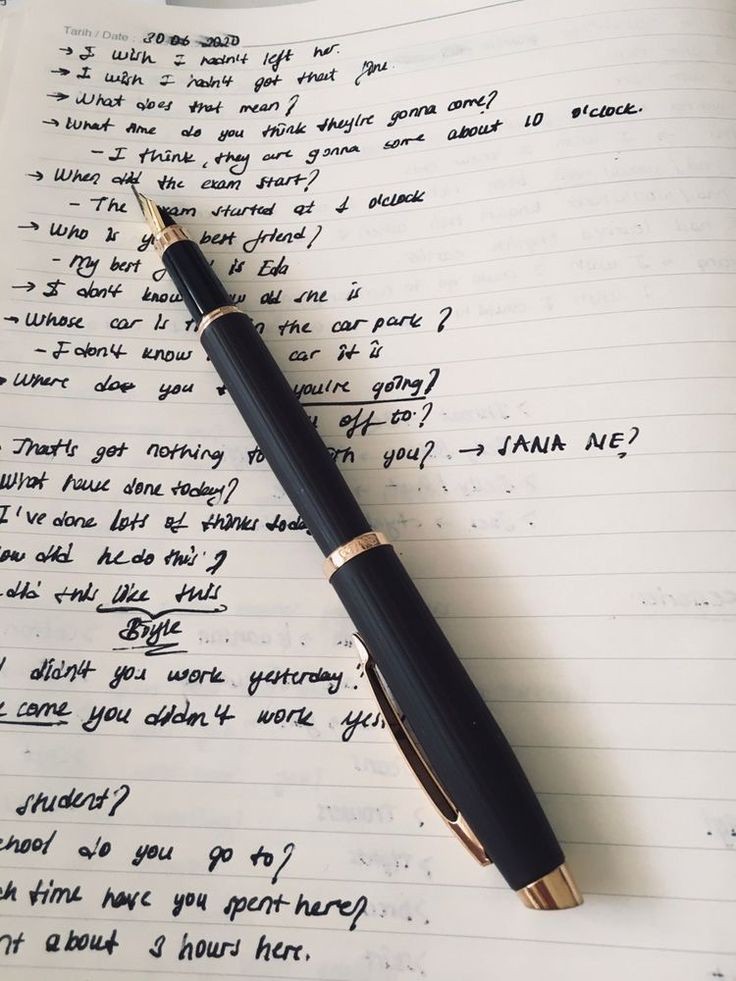 Tarih / Date : 30 06 2020
→ I wish I hadn't left her.
→ I wish I hadn't got that
→ What does that mean?
→ What time do you think they're gonna come?
- I think, they are gonna some about 10 o'clock.
→ When did the exam start?
- The exam started at 1 o'clock
→ Who is your best friend?
- My best is Eda
→ I don't know old she is
→ Whose car is the car park?
- I don't know car it is
→ Where do you you're going?
off to?
That's got nothing to you? → SANA NE?
What have done today?
I've done lots of thinks today
did he do this?
did this like this
Böyle
didn't you work yesterday?
come you didn't work yes
student?
do you go to?
time have you spent here?
about 3 hours here.